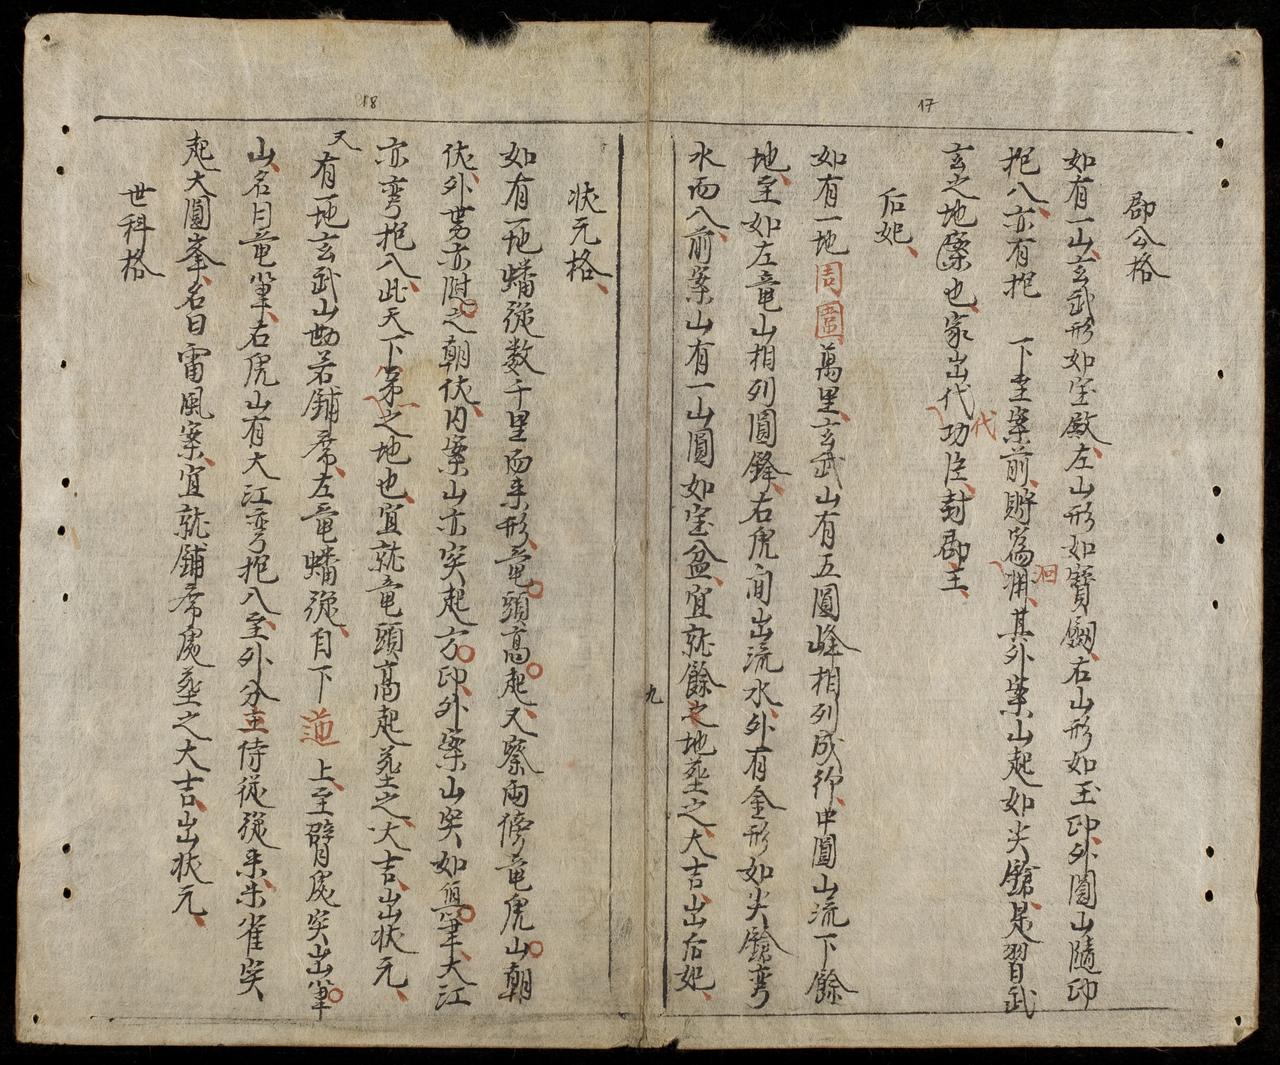 17
郡公格
如有一山玄武形如宝殿左山形如寶劔右山形如玉印外圓山隨印
抱八亦有抱 下至案前將為用其外案山起如尖鎗是習武
洄
代
玄之地案也家出代功臣封郡主
后妃
如有一地周圍萬里玄武山有五圓峰相列成行中圓山流下餘
地至如左竜山相列圓鋒右虎间出流水外有金形如尖鎗弯
水而八前案山有一山圓如宝盆宜就餘之地葬之大吉出后妃
九
18
状元格
如有一地蟠強数千里而来形竜頭高起又察两傍竜虎山朝
伏外势亦附之朝伏内案山亦突起方印外案山突如無筆大江
亦弯抱八此天下第之地也宜就竜頭高起葬之大吉出状元
又有一地玄武山勢若鋪席左竜蟠強自下逆上至臂處突出筆
山名曰竜筆右虎山有大江弯抱八至外分立侍從強来朱雀突
起大圓峯名曰雷風案宜就鋪席處葬之大吉出状元
世科格